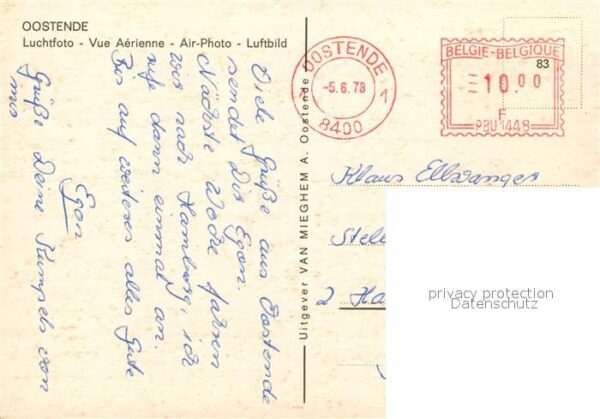 OOSTENDE
Luchtfoto - Vue Aérienne - Air-Photo - Luftbild
Viele Grüße aus Oostende
sendet Dir Egon.
Nächste Woche fahren
wir nach Hamburg, ich
rufe dann einmal an.
Bis auf weiteres alles Gute
Egon
Grüße Deine
von
mir
Uitgever VAN MIEGHEM A. Oostende
OOSTENDE
-5.6.78
1
8400
BELGIE-BELGIQUE
83
10.00
F
PBU 1448
Klaus Ellwanger
Stell
2 Ha
privacy protection
Datenschutz